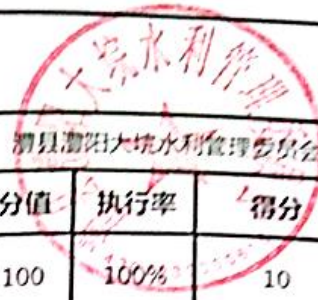 大垸水利管理
澧县澧阳大垸水利管理委员会
分值 执行率 得分
100 100% 10